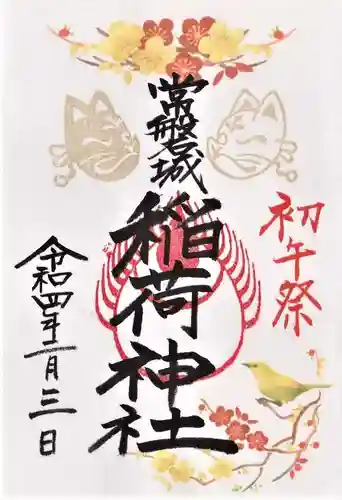 初午祭
常盤城
稲荷神社
令和四年二月三日